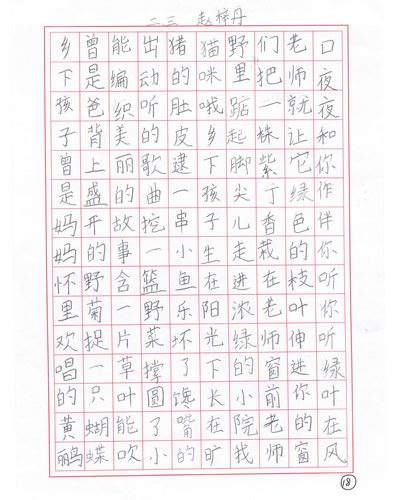 二三 赵梓丹
乡下孩子曾是妈妈怀里欢唱的黄鹂
曾是爸背上盛开的野菊捉一只蝴蝶
能编织美丽的故事含一片草叶能吹
出动听的歌曲挖一篮野菜撑圆了小
猪的肚皮逮一串小鱼乐坏了馋嘴的
猫咪哦乡下孩子生在阳光下长在旷
野里踮起脚尖儿走进浓绿的小院找
们把一株紫丁香栽在老师窗前老师
老师就让它绿色的枝叶伸进你的窗
口夜夜和你作伴你听你听绿叶在风
18